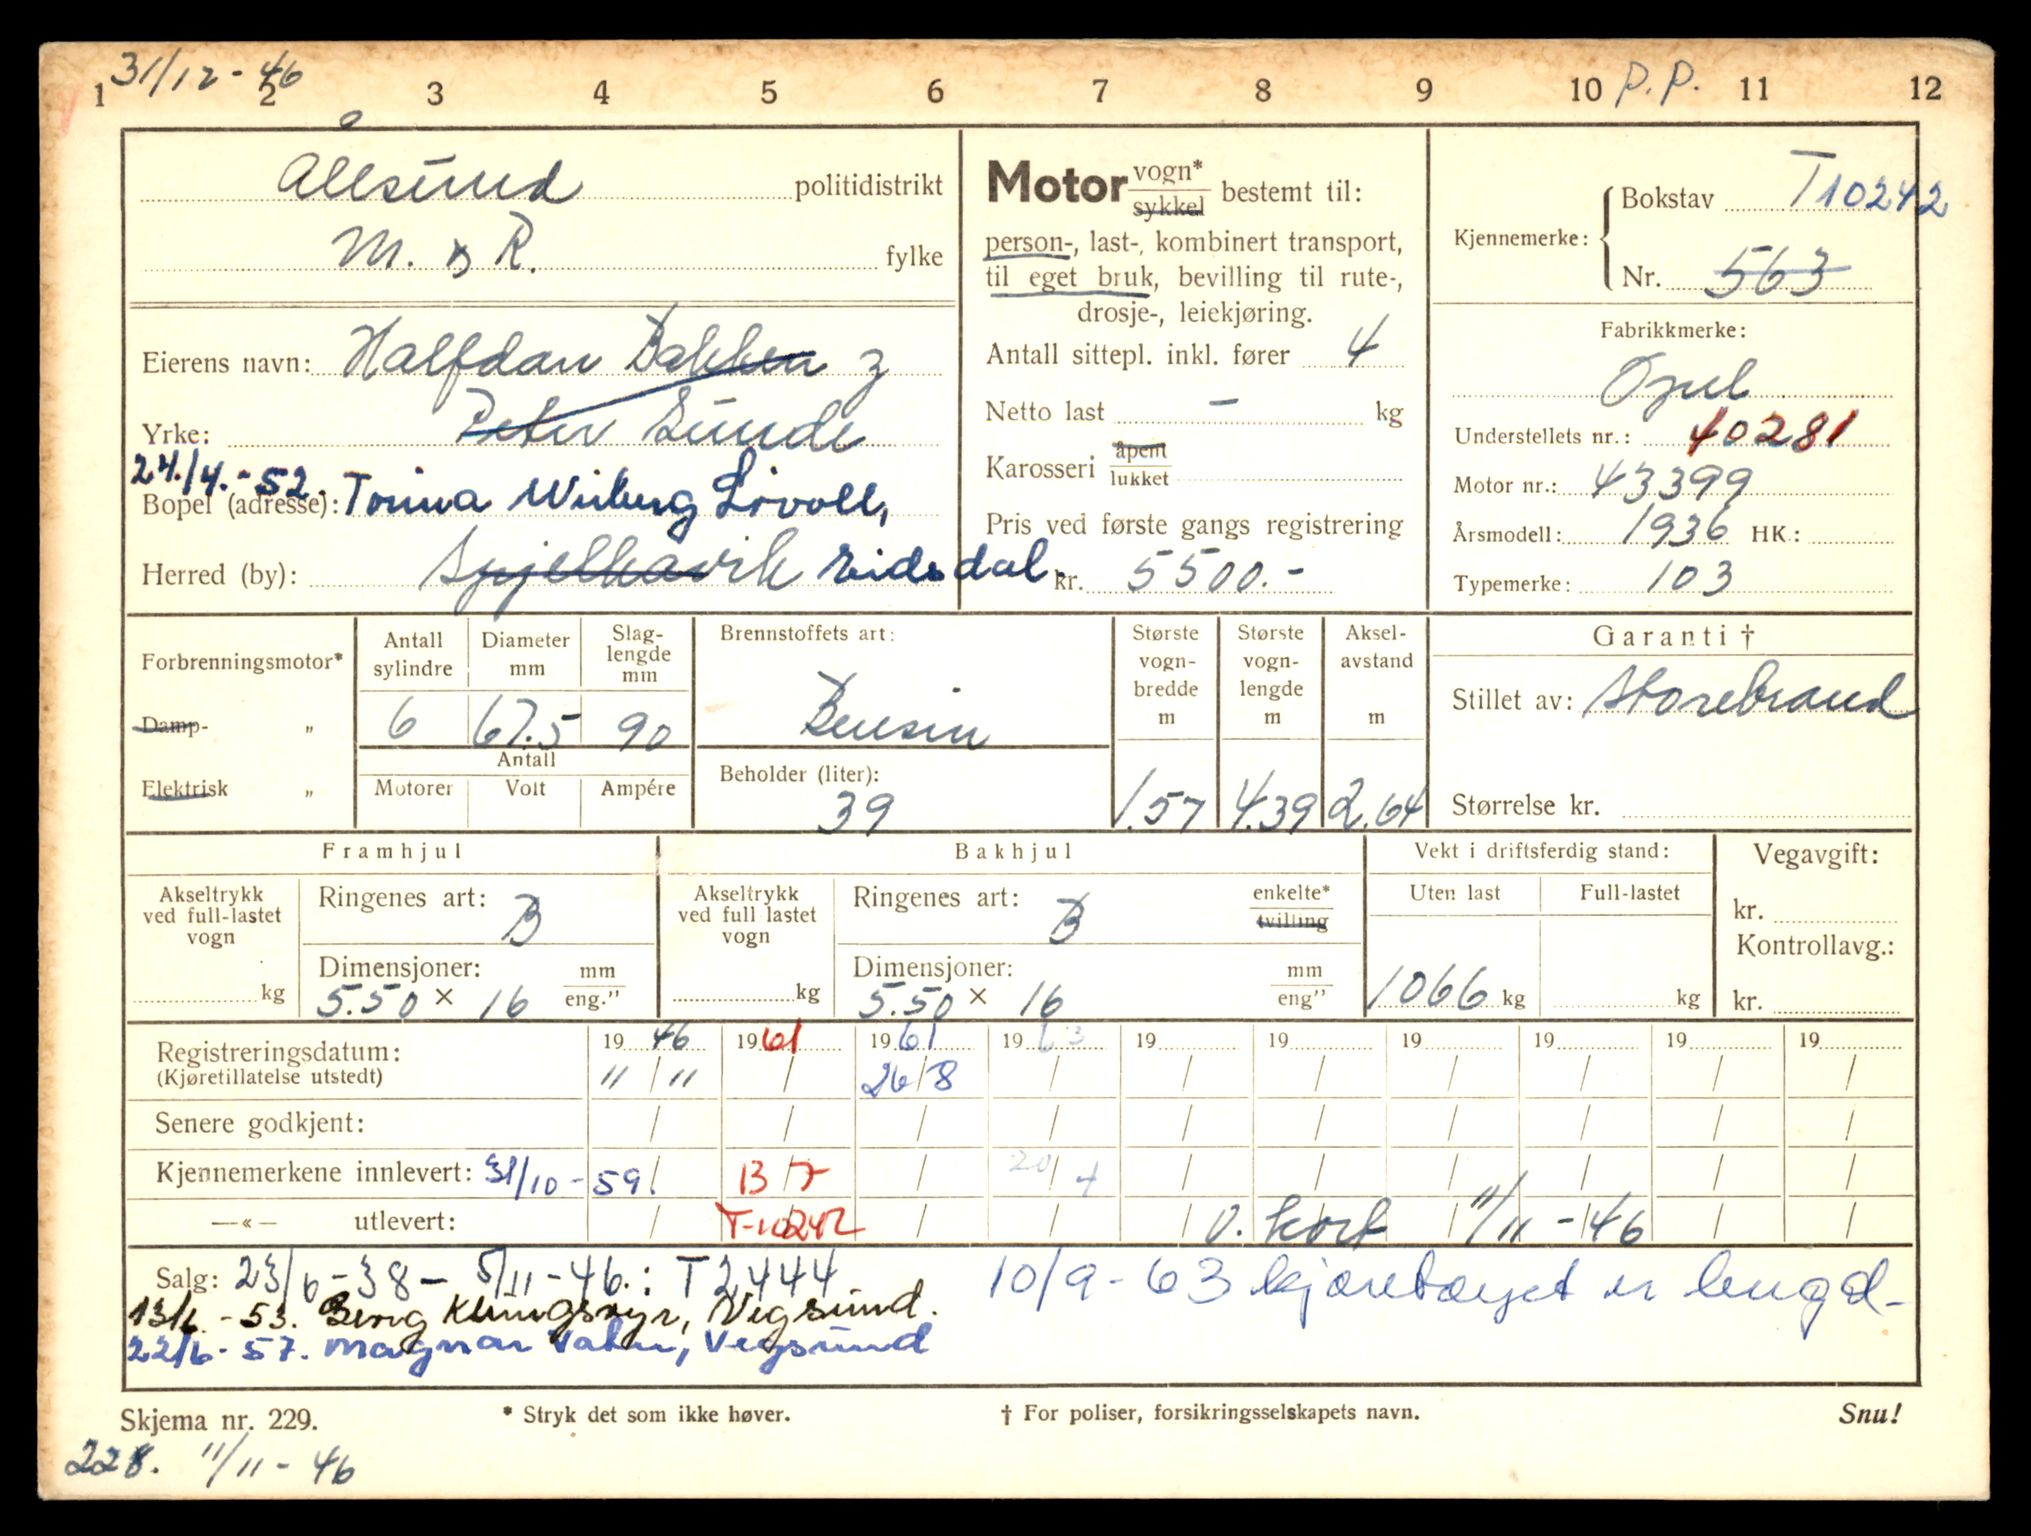 31/12-46
1 2 3 4 5 6 7 8 9 10 P.P. 11 12
Ålesund politidistrikt
M. & R. fylke
Eierens navn: Halfdan Bakken &
Yrke: Peter Sunde
24./4.-52.
Bopel (adresse): Torina Wiberg Løvoll,
Herred (by): Spjelkavik Eidsdal.
Motor vogn* sykkel bestemt til:
person-, last-, kombinert transport,
til eget bruk, bevilling til rute-,
drosje-, leiekjøring.
Antall sittepl. inkl. fører 4
Netto last – kg
Karosseri åpent lukket
Pris ved første gangs registrering
kr. 5500.-
Kjennemerke: Bokstav T10242
Nr. 563
Fabrikkmerke:
Opel
Understellets nr.: 40281
Motor nr.: 43399
Årsmodell: 1936 HK.:
Typemerke: 103
Forbrenningsmotor*
Damp- „
Elektrisk „
Antall sylindre 6
Diameter mm 67.5
Slag-lengde mm 90
Antall
Motorer Volt Ampére
Brennstoffets art:
Bensin
Beholder (liter):
39
Største vogn-bredde m 1.57
Største vogn-lengde m 4.39
Aksel-avstand m 2.64
Garanti †
Stillet av: Storebrand
Størrelse kr.
Framhjul
Akseltrykk ved full-lastet vogn kg
Ringenes art: B
Dimensjoner: mm eng."
5.50 × 16
Bakhjul
Akseltrykk ved full lastet vogn kg
Ringenes art: B enkelte* tvilling
Dimensjoner: mm eng"
5.50 × 16
Vekt i driftsferdig stand:
Uten last Full-lastet
1066 kg kg
Vegavgift:
kr.
Kontrollavg.:
kr.
Registreringsdatum: 19 46 19 61 19 61 19 63 19 19 19 19 19 19
(Kjøretillatelse utstedt) 11/11 / 26/8 / / / / / / /
Senere godkjent: / / / / / / / / / /
Kjennemerkene innlevert: 31/10-59. 13/7 20/4
—«— utlevert: T-10242 v. kort 11/11-46
Salg: 23/6-38 – 5/11-46.: T2444 10/9-63 kjøretøyet er hugd-
13/6.-53. Berg Klungsøyr, Vegsund.
22/6-57. Magnar Vatne, Vegsund
Skjema nr. 229. * Stryk det som ikke høver. † For poliser, forsikringsselskapets navn. Snu!
228. 11/11-46